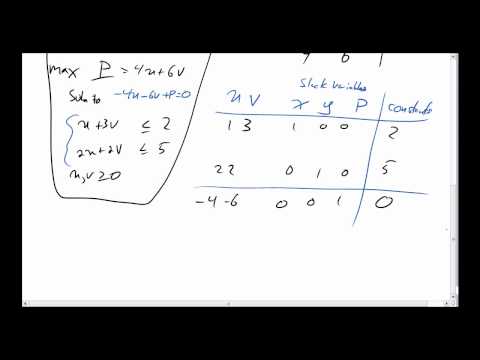 max P = 4u+6v
-4u-6v+P=0
u+3v ≤ 2
2u+2v ≤ 5
u,v ≥ 0
Slack variables
u v x y P constants
1 3 1 0 0 2
2 2 0 1 0 5
-4 -6 0 0 1 0